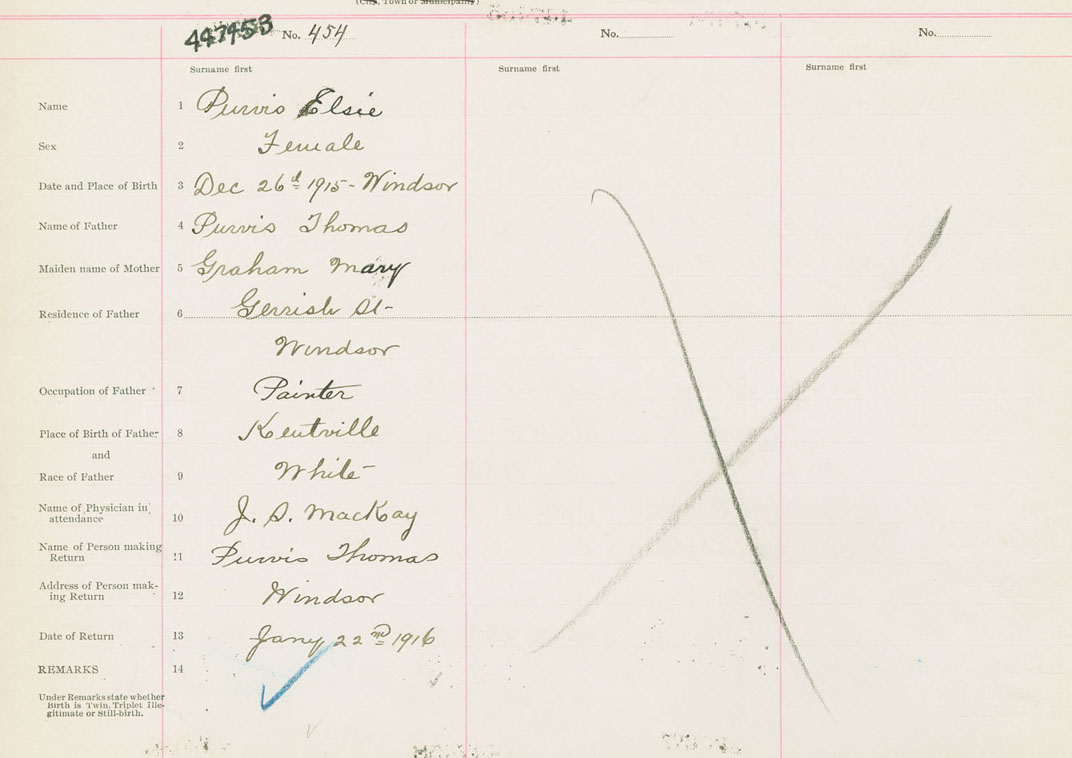 (City, Town or Municipality)
447453 No. 454 No. No.
Surname first Surname first Surname first
Name 1 Purvis Elsie
Sex 2 Female
Date and Place of Birth 3 Dec 26th 1915 - Windsor
Name of Father 4 Purvis Thomas
Maiden name of Mother 5 Graham Mary
Residence of Father 6 Gerrish St-
Windsor
Occupation of Father 7 Painter
Place of Birth of Father 8 Kentville
and
Race of Father 9 White
Name of Physician in
attendance 10 J. S. MacKay
Name of Person making
Return 11 Purvis Thomas
Address of Person mak-
ing Return 12 Windsor
Date of Return 13 Jany 22nd 1916
REMARKS 14
Under Remarks state whether
Birth is Twin, Triplet Ille-
gitimate or Still-birth.